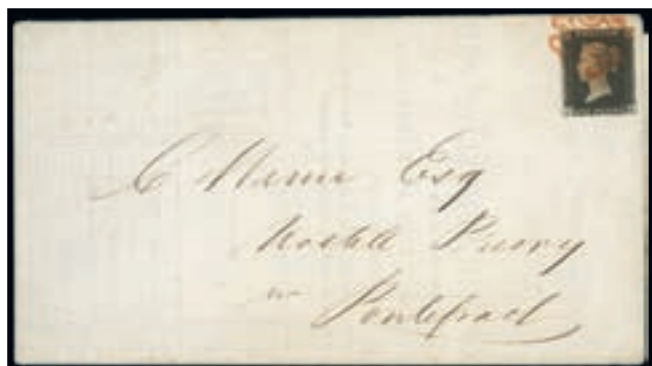 C Esq
Nostell Priory
nr Pontefract